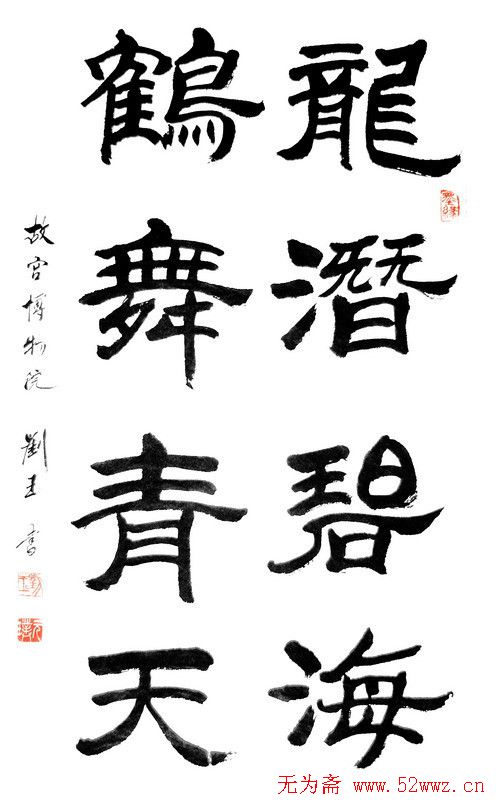 龍潛碧海
鶴舞青天
故宮博物院 劉玉 書
无为斋 www.52wwz.cn